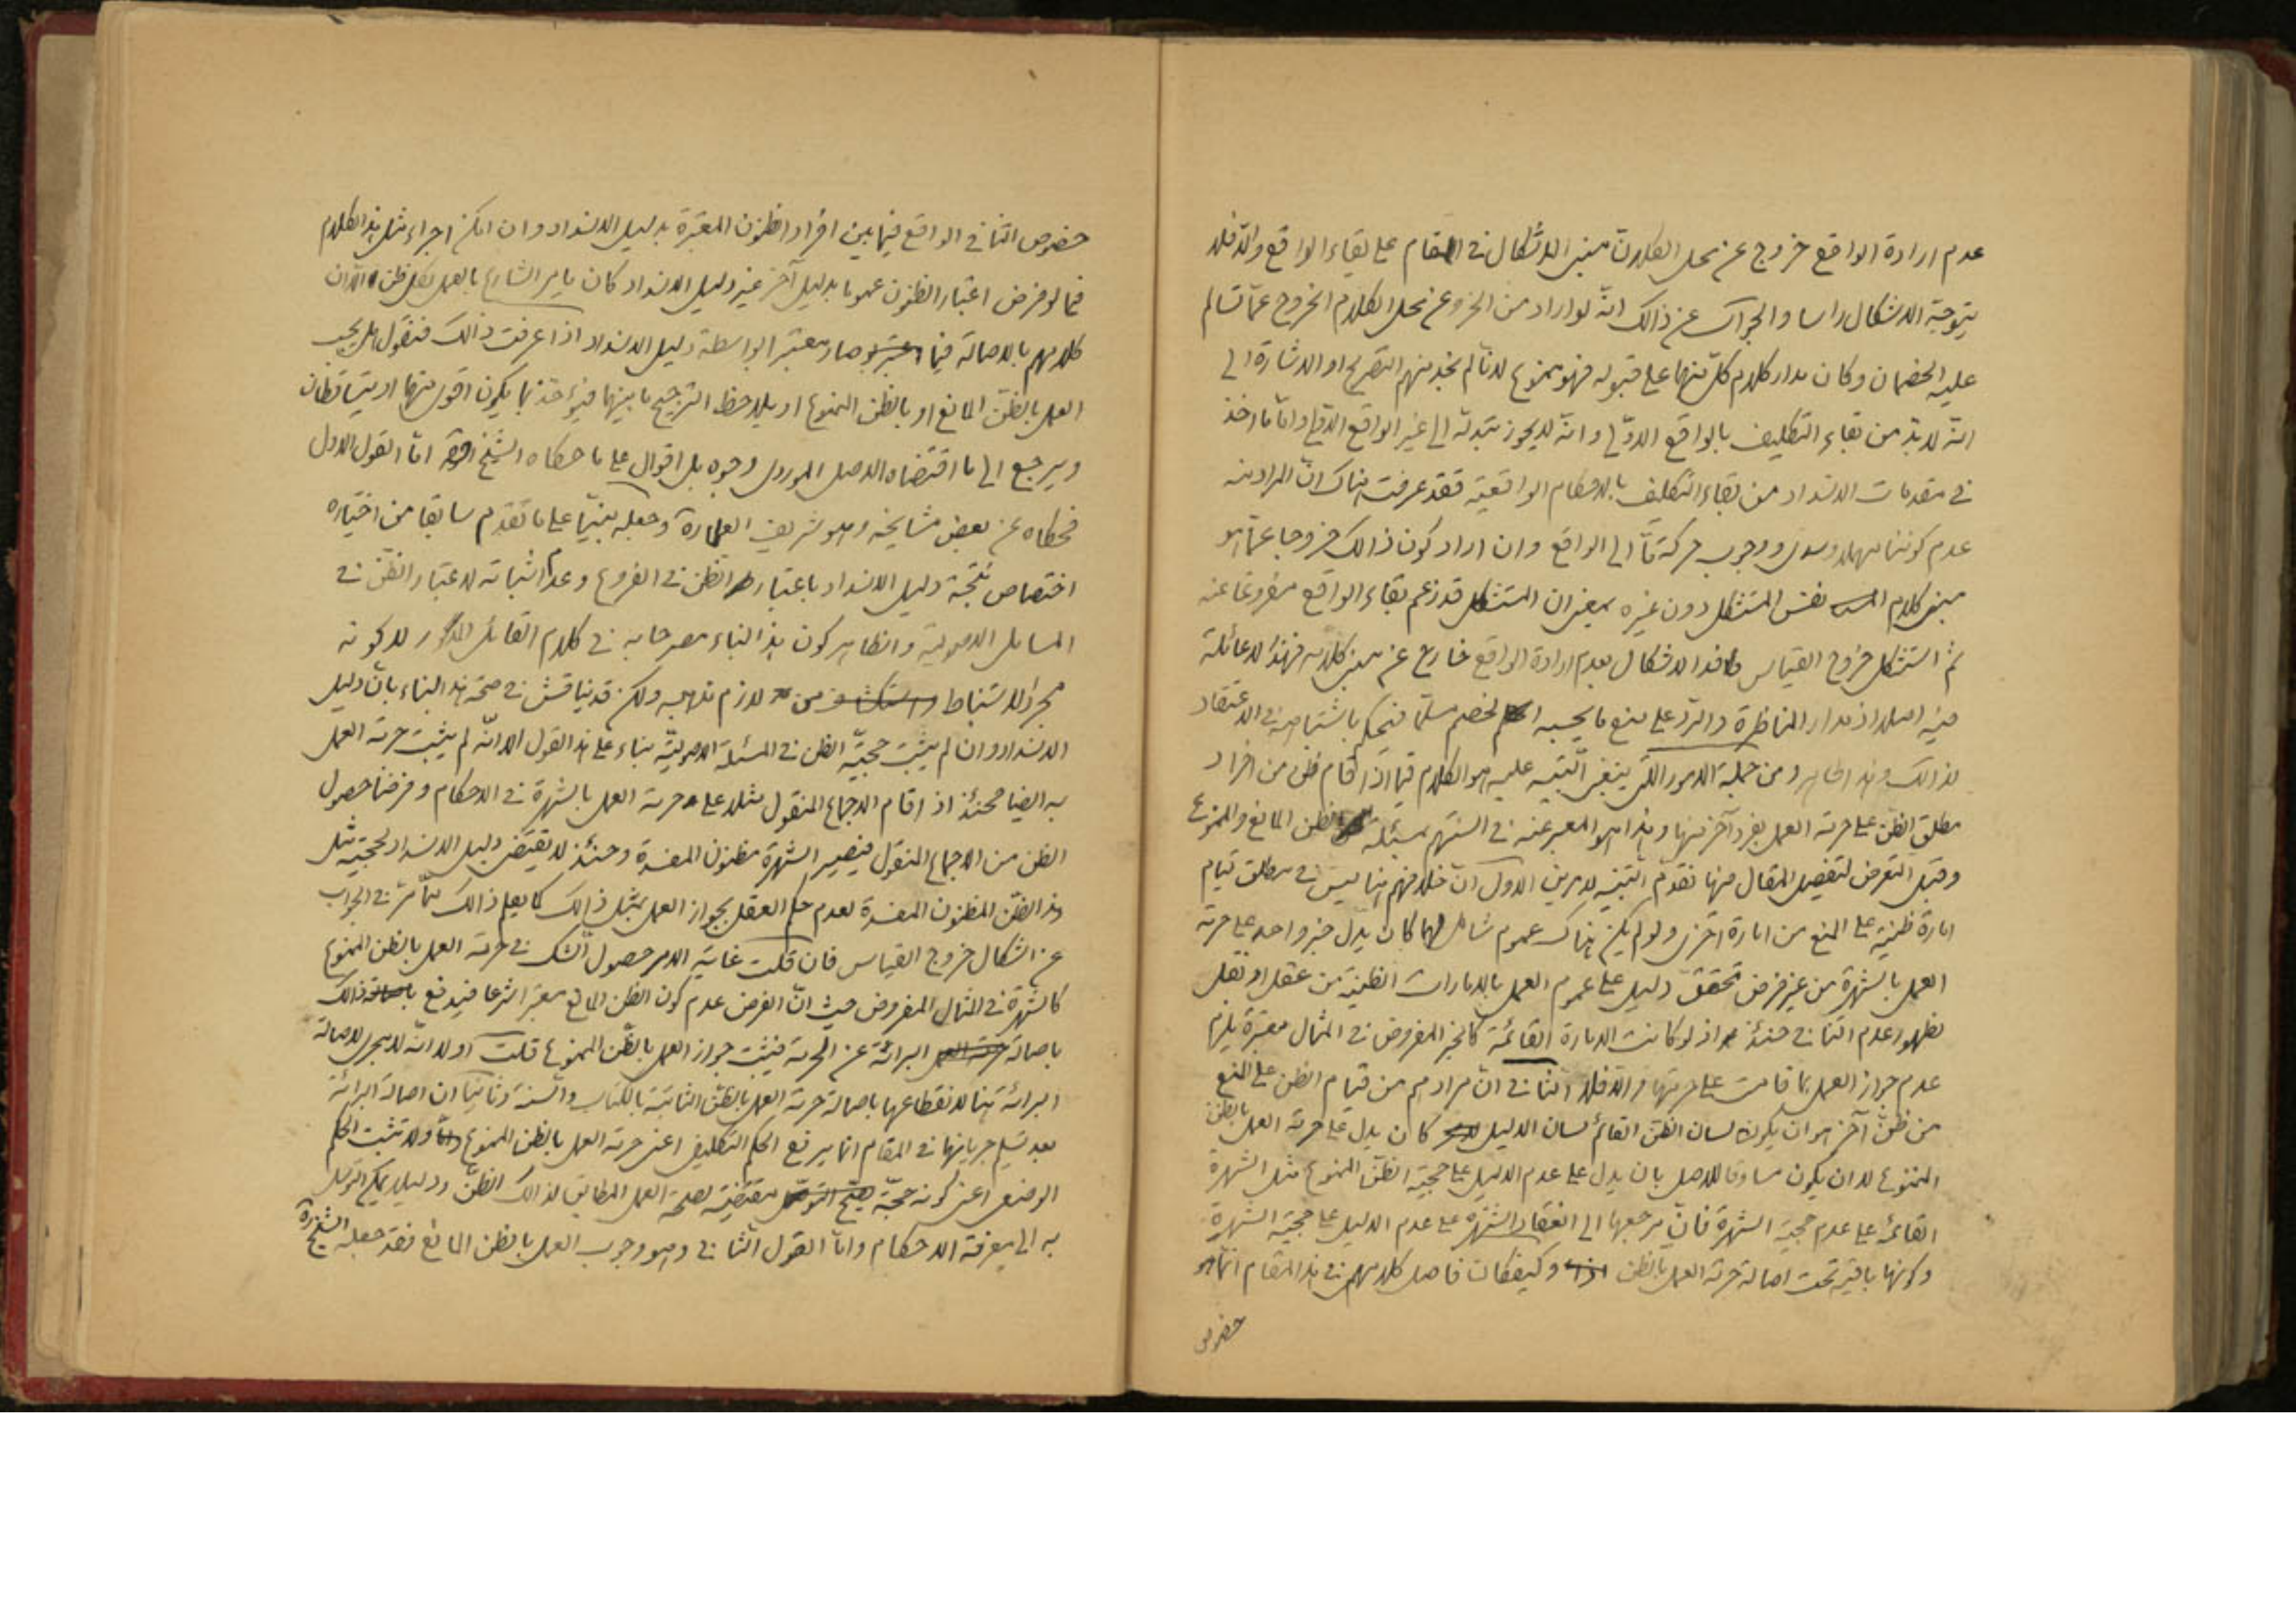 عدم ارادة الواقع خروج عن محل الكلام مبنى الاشكال فى المقام على بقاء الواقع والا فلا
يتوجه الاشكال راسا والجواب عن ذالك انه لو اراد من الخروج عن محل الكلام الخروج عما تسالم
عليه الخصمان وكان مدار كلام كل منهما على قبوله فهو ممنوع لانا لم نجد منهم التصريح او الاشارة الى
انه لا بد من بقاء التكليف بالواقع الاولى وانه لا يجوز تبدله الى غير الواقع الاولى واما ما اخذ
فى مقدمات الانسداد من بقاء التكليف بالاحكام الواقعية فقد عرفت هناك ان المراد منه
عدم كوننا مهملا وسدى ووجوب حركة ما الى الواقع وان اراد كون ذالك خروجا عما هو
مبنى كلام نفس المستشكل دون غيره بمعنى ان المستشكل قد زعم بقاء الواقع مفروغا عنه
ثم استشكل خروج القياس فدفع الاشكال بعدم ارادة الواقع خارج عن مبنى كلامه فهذا لا عائلة
فيه اصلا اذ مدار المناظرة والرد على منع ما يحسبه الخصم مسلما فنحكم باشتباهه فى الاعتقاد
لذالك وهذا ظاهر ومن جملة الامور اللتى ينبغى التنبيه عليه هو الكلام فيما اذا قام ظن من افراد
مطلق الظن على حرمة العمل بفرد آخر منها وهذا هو المعبر عنه فى السنتهم بمسئلة الظن المانع والممنوع
وقبل التعرض لتفصيل المقال منها نقدم التنبيه لامرين الاول ان خلافهم هنا ليس فى مطلق قيام
امارة ظنية على المنع من امارة اخرى ولو لم يكن هناك عموم شامل لهما كان يدل خبر واحد على حرمة
العمل بالشهرة من غير فرض تحقق دليل على عموم العمل بالامارات الظنية من عقل او نقل
لظهور عدم التنافى حنئذ اذ لو كانت الامارة القائمة كالخبر المفروض فى المثال معتبرة يلزم
عدم جواز العمل بما قامت على حرمتها والا فلا الثانى ان مرادهم من قيام الظن على المنع
من ظن آخر هو ان يكون لسان الظن القائم لسان الدليل كان يدل على حرمة العمل بالظن
الممنوع لا ان يكون مساوقا للاصل بان يدل على عدم الدليل على حجية الظن الممنوع مثل الشهرة
القائمة على عدم حجية الشهرة فان مرجعها الى انعقاد الشهرة على عدم الدليل على حجية الشهرة
وكونها باقية تحت اصالة حرمة العمل بالظن وكيفكان فاصل كلامهم فى هذا المقام انما هو
خصوص
خصوص التنافى الواقع فيما بين افراد الظنون المعتبرة بدليل الانسداد وان امكن اجراء مثل هذا الكلام
فيما لو فرض اعتبار الظنون عموما بدليل آخر غير دليل الانسداد كان يامر الشارع بالعمل بكل ظن الا ان
كلامهم بالاصالة فيما صار معتبرا بواسطة دليل الانسداد اذا عرفت ذالك فنقول هل يجب
العمل بالظن المانع او بالظن الممنوع او يلاحظ الترجيح ما بينهما فيؤخذ بما يكون اقوى منهما او يتساقطان
ويرجع الى ما اقتضاه الاصل الموردى وجوه بل اقوال على ما حكاه الشيخ اما القول الاول
فحكاه عن بعض مشايخه وهو شريف العلماء وجعله مبنيا على ما تقدم سابقا من اختياره
اختصاص نتيجة دليل الانسداد باعتبار الظن فى الفروع وعدم اثباته لاعتبار الظن فى
المسائل الاصولية والظاهر كون هذا البناء مصرحا به فى كلام القائل المذكور لا كونه
مجرد الاستنباط من لازم مذهبه ولكن قد يناقش فى صحة هذا البناء بان دليل
الانسداد وان لم يثبت حجية الظن فى المسئلة الاصولية بناء على هذا القول الا انه لم يثبت حرمة العمل
به ايضا فحنئذ اذا قام الاجماع المنقول مثلا على حرمة العمل بالشهرة فى الاحكام وفرضنا حصول
الظن من الاجماع المنقول فيصير الشهرة مظنون المفسدة وحنئذ لا يقتضى دليل الانسداد لحجية مثل
هذا الظن المظنون المفسدة لعدم حكم العقل بجواز العمل بمثل ذالك كما يعلم ذالك مما مر فى الجواب
عن اشكال خروج القياس فان قلت غاية الامر حصول الشك فى حرمة العمل بالظن الممنوع
كالشهرة فى المثال المفروض حيث ان الفرض عدم كون الظن المانع معتبرا شرعا فيدفع ذالك
باصالة البرائة عن الحرمة فيثبت جواز العمل بالظن الممنوع قلت اولا انه لا مجرى لاصالة
البرائة هنا لانقطاعها باصالة حرمة العمل بالظن الثابتة بالكتاب والسنة وثانيا ان اصالة البرائة
بعد تسليم جريانها فى المقام انما يرفع الحكم التكليفى اعنى حرمة العمل بالظن الممنوع ولا تثبت الحكم
الوضعى اعنى كونه حجة مقتضية لصحة العمل المطابق لذالك الظن ودليلا يمكن التوصل
به الى معرفة الاحكام واما القول الثانى وهو وجوب العمل بالظن المانع فقد جعله الشيخ